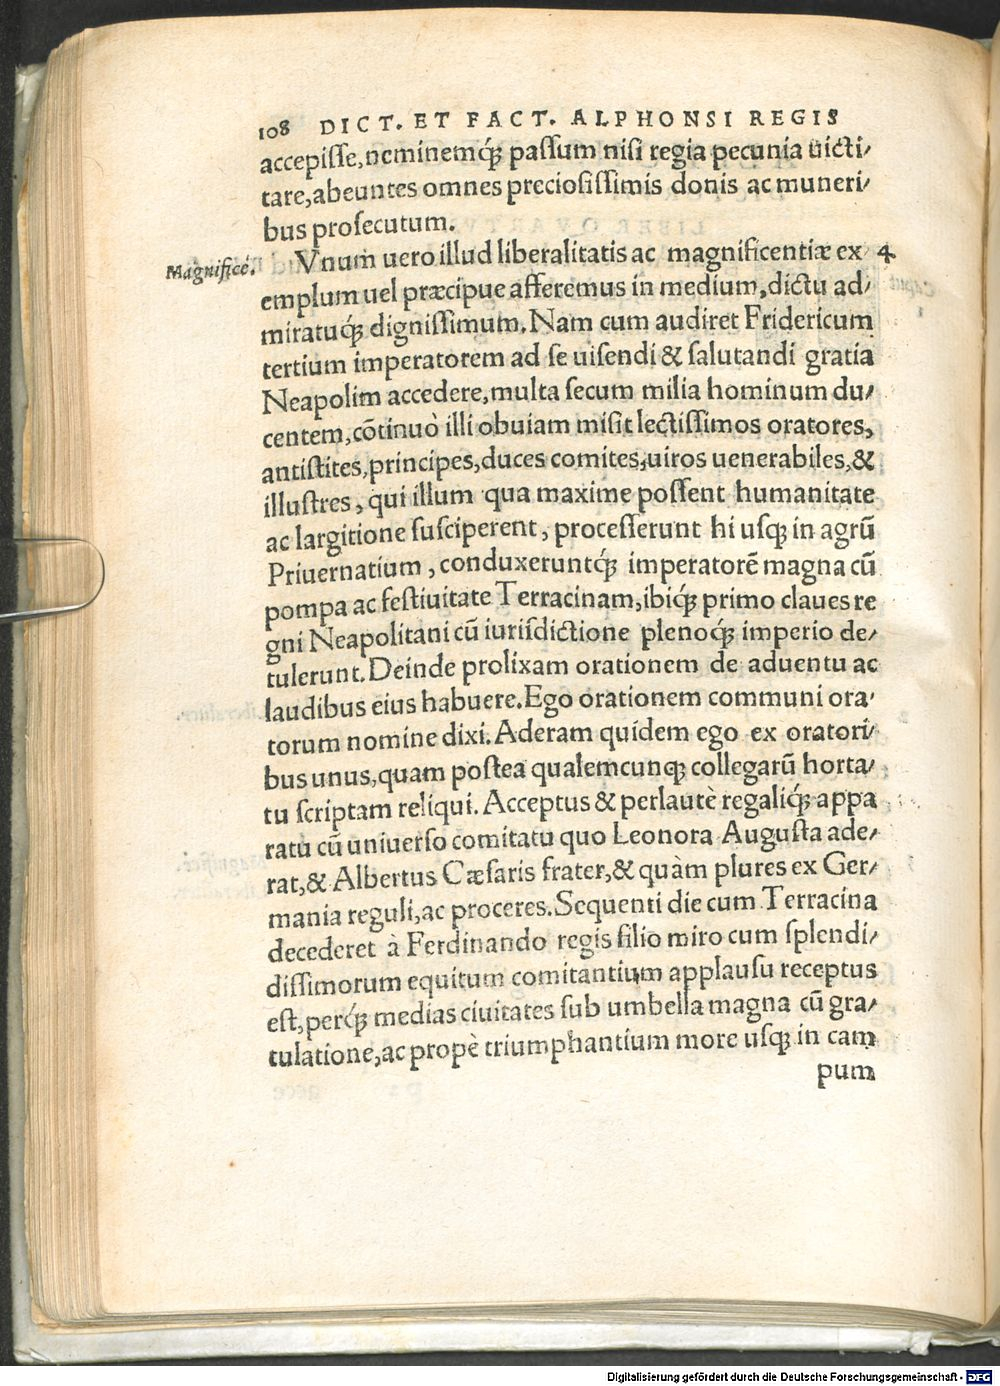 108 DICT. ET FACT. ALPHONSI REGIS
accepisse, neminemq́ꝫ passum nisi regia pecunia uicti/
tare, abeuntes omnes preciosissimis donis ac muneri/
bus prosecutum.
Magnificè. Vnum uero illud liberalitatis ac magnificentiæ ex/ 4
emplum uel præcipue afferemus in medium, dictu ad/
miratuq́ꝫ dignissimum. Nam cum audiret Fridericum
tertium imperatorem ad se uisendi & salutandi gratia
Neapolim accedere, multa secum milia hominum du/
centem, cõtinuò illi obuiam misit lectissimos oratores,
antistites, principes, duces comites, uiros uenerabiles, &
illustres, qui illum qua maxime possent humanitate
ac largitione susciperent, processerunt hi usqꝫ in agrũ
Priuernatium, conduxeruntq́ꝫ imperatorẽ magna cũ
pompa ac festiuitate Terracinam, ibiq́ꝫ primo claues re
gni Neapolitani cũ iurisdictione plenoq́ꝫ imperio de/
tulerunt. Deinde prolixam orationem de aduentu ac
laudibus eius habuere. Ego orationem communi ora/
torum nomine dixi. Aderam quidem ego ex oratori/
bus unus, quam postea qualemcunqꝫ collegarũ horta/
tu scriptam reliqui. Acceptus & perlautè regaliq́ꝫ appa
ratu cũ uniuerso comitatu quo Leonora Augusta ade/
rat, & Albertus Cæsaris frater, & quàm plures ex Ger/
mania reguli, ac proceres. Sequenti die cum Terracina
decederet à Ferdinando regis filio miro cum splendi/
dissimorum equitum comitantium applausu receptus
est, perq́ꝫ medias ciuitates sub umbella magna cũ gra/
tulatione, ac propè triumphantium more usqꝫ in cam
pum
Digitalisierung gefördert durch die Deutsche Forschungsgemeinschaft - DFG